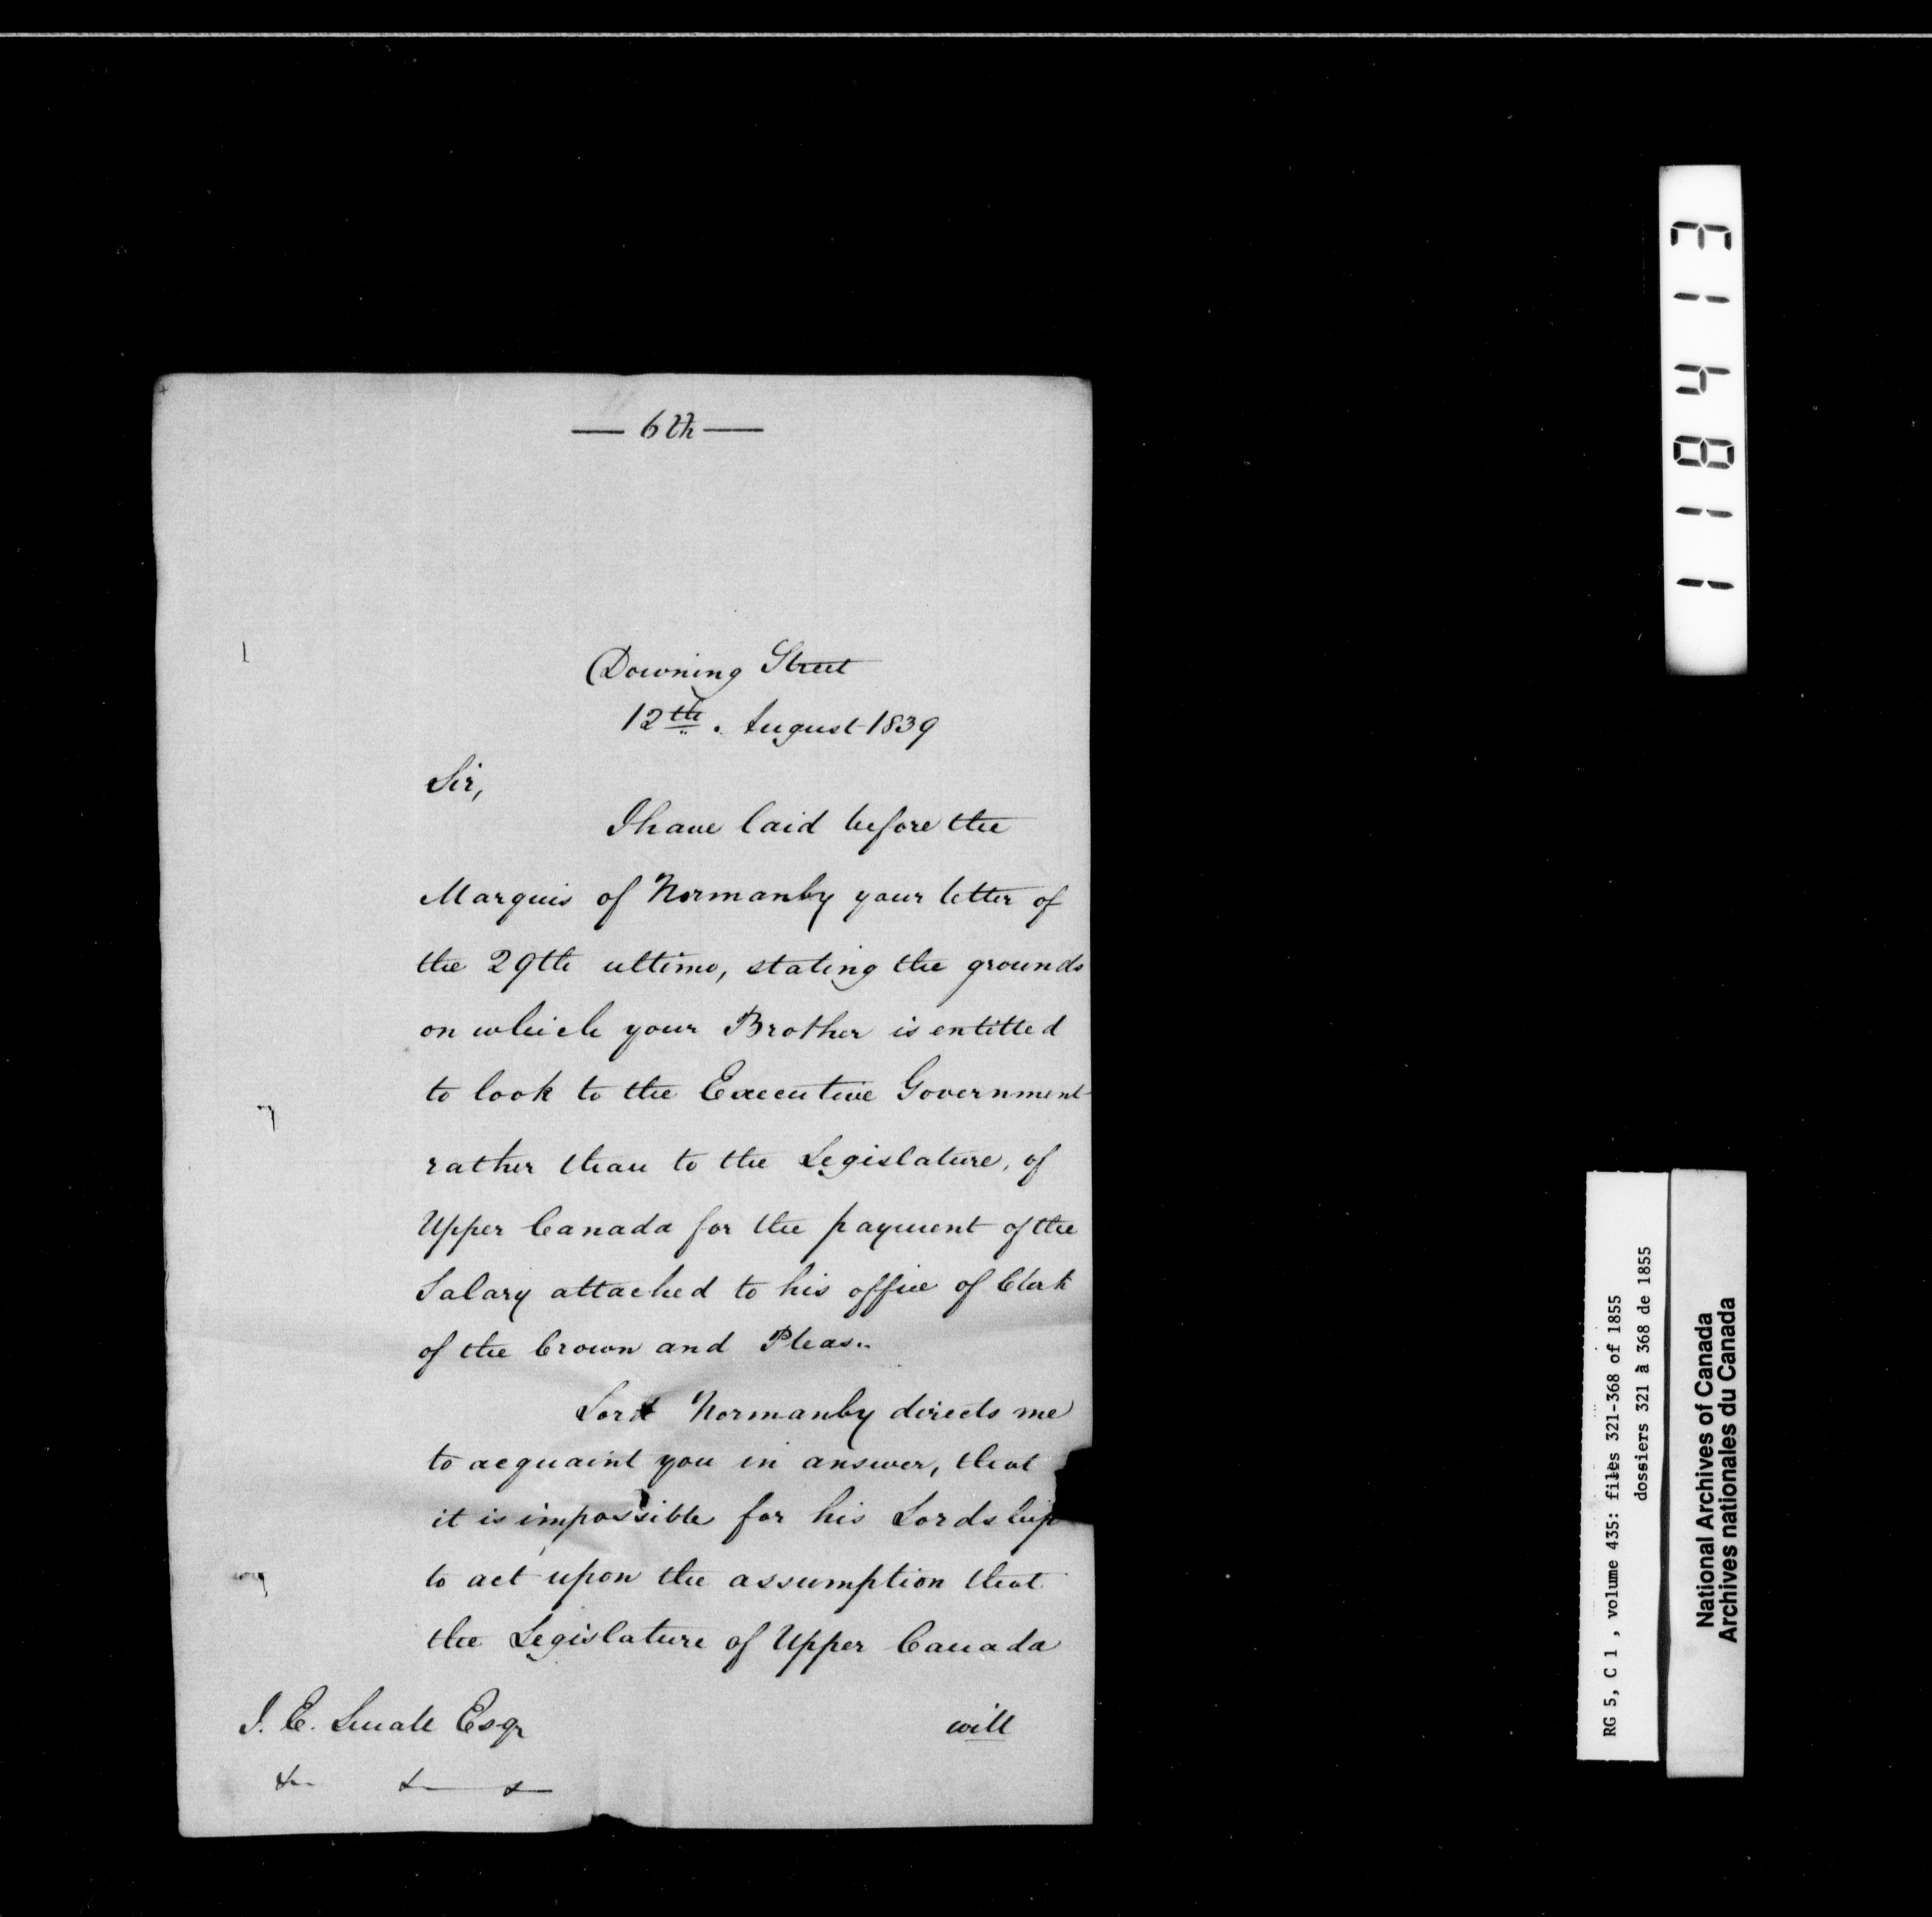 — 6th —
Downing Street
12th. August 1839
Sir,
I have laid before the
Marquis of Normanby your letter of
the 29th ultimo, stating the grounds
on which your Brother is entitled
to look to the Executive Government
rather than to the Legislature, of
Upper Canada for the payment of the
Salary attached to his office of Clerk
of the Crown and Pleas..
Lord Normanby directs me
to acquaint you in answer, that
it is impossible for his Lordship
to act upon the assumption that
the Legislature of Upper Canada
will
J. E. Small Esqr
& & &
113411
RG 5, C 1 , volume 435: files 321-368 of 1855
dossiers 321 à 368 de 1855
National Archives of Canada
Archives nationales du Canada